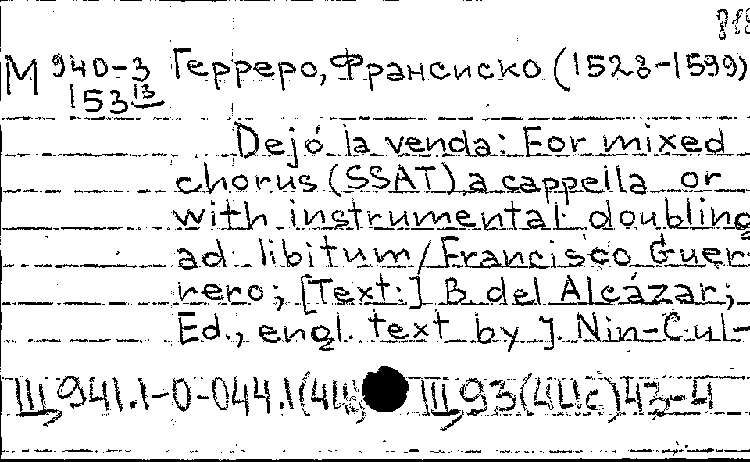 М 940-3 Герреро, Франсиско (1528-1599)
153 13
Dejó la venda: For mixed
chorus (SSAT) a cappella or
with instrumental doubling
ad libitum / Francisco Guer-
rero; [Text:] B. del Alcázar;
Ed., engl. text by J. Nin-Cul-
Щ941.1-0-044.1(4Ис) Щ93(4Ис)43-4